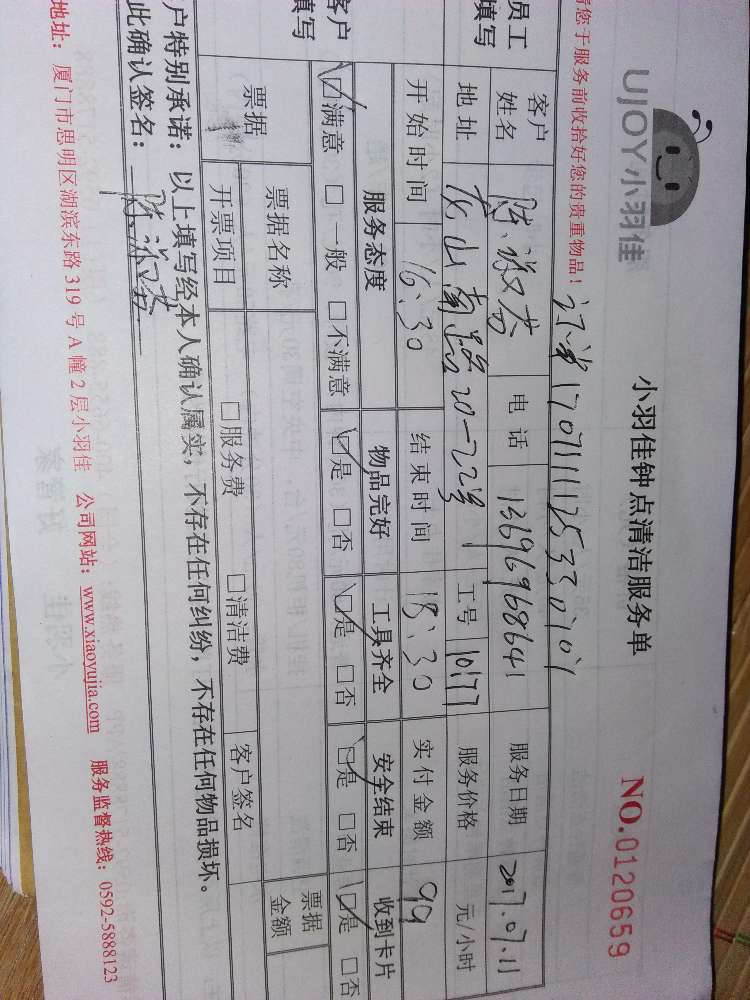 UJOY小羽佳
小羽佳钟点清洁服务单
NO.0120659
您于服务前收拾好您的贵重物品！
订单1707111125330701
员工填写
客户姓名 陈淑芳 电话 13696968641 服务日期 2017.07.11
地址 龙山南路20-22号 工号 10177 服务价格 元/小时
开始时间 16:30 结束时间 18:30 实付金额 99
客户填写
服务态度 物品完好 工具齐全 安全结束 收到卡片
☑满意 □一般 □不满意 ☑是 □否 ☑是 □否 ☑是 □否 ☑是 □否
票据 票据名称 票据金额
开票项目 □服务费 □清洁费 客户签名
户特别承诺：以上填写经本人确认属实，不存在任何纠纷，不存在任何物品损坏。
此确认签名：陈淑芳
地址：厦门市思明区湖滨东路319号A幢2层小羽佳 公司网站：www.xiaoyujia.com 服务监督热线：0592-5888123